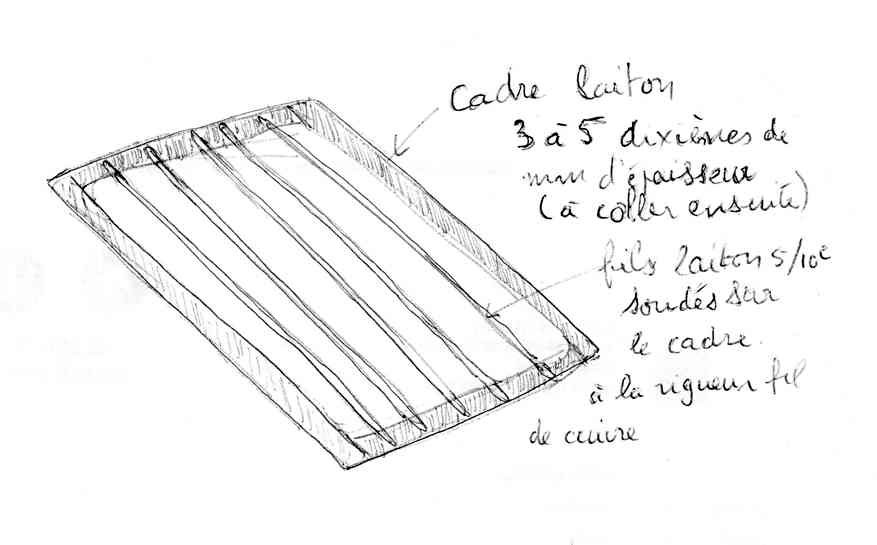 Cadre laiton
3 à 5 dixièmes de
mm d'épaisseur
(à coller ensuite)
fils laiton 5/10e
soudés sur
le cadre.
à la rigueur fil
de cuivre